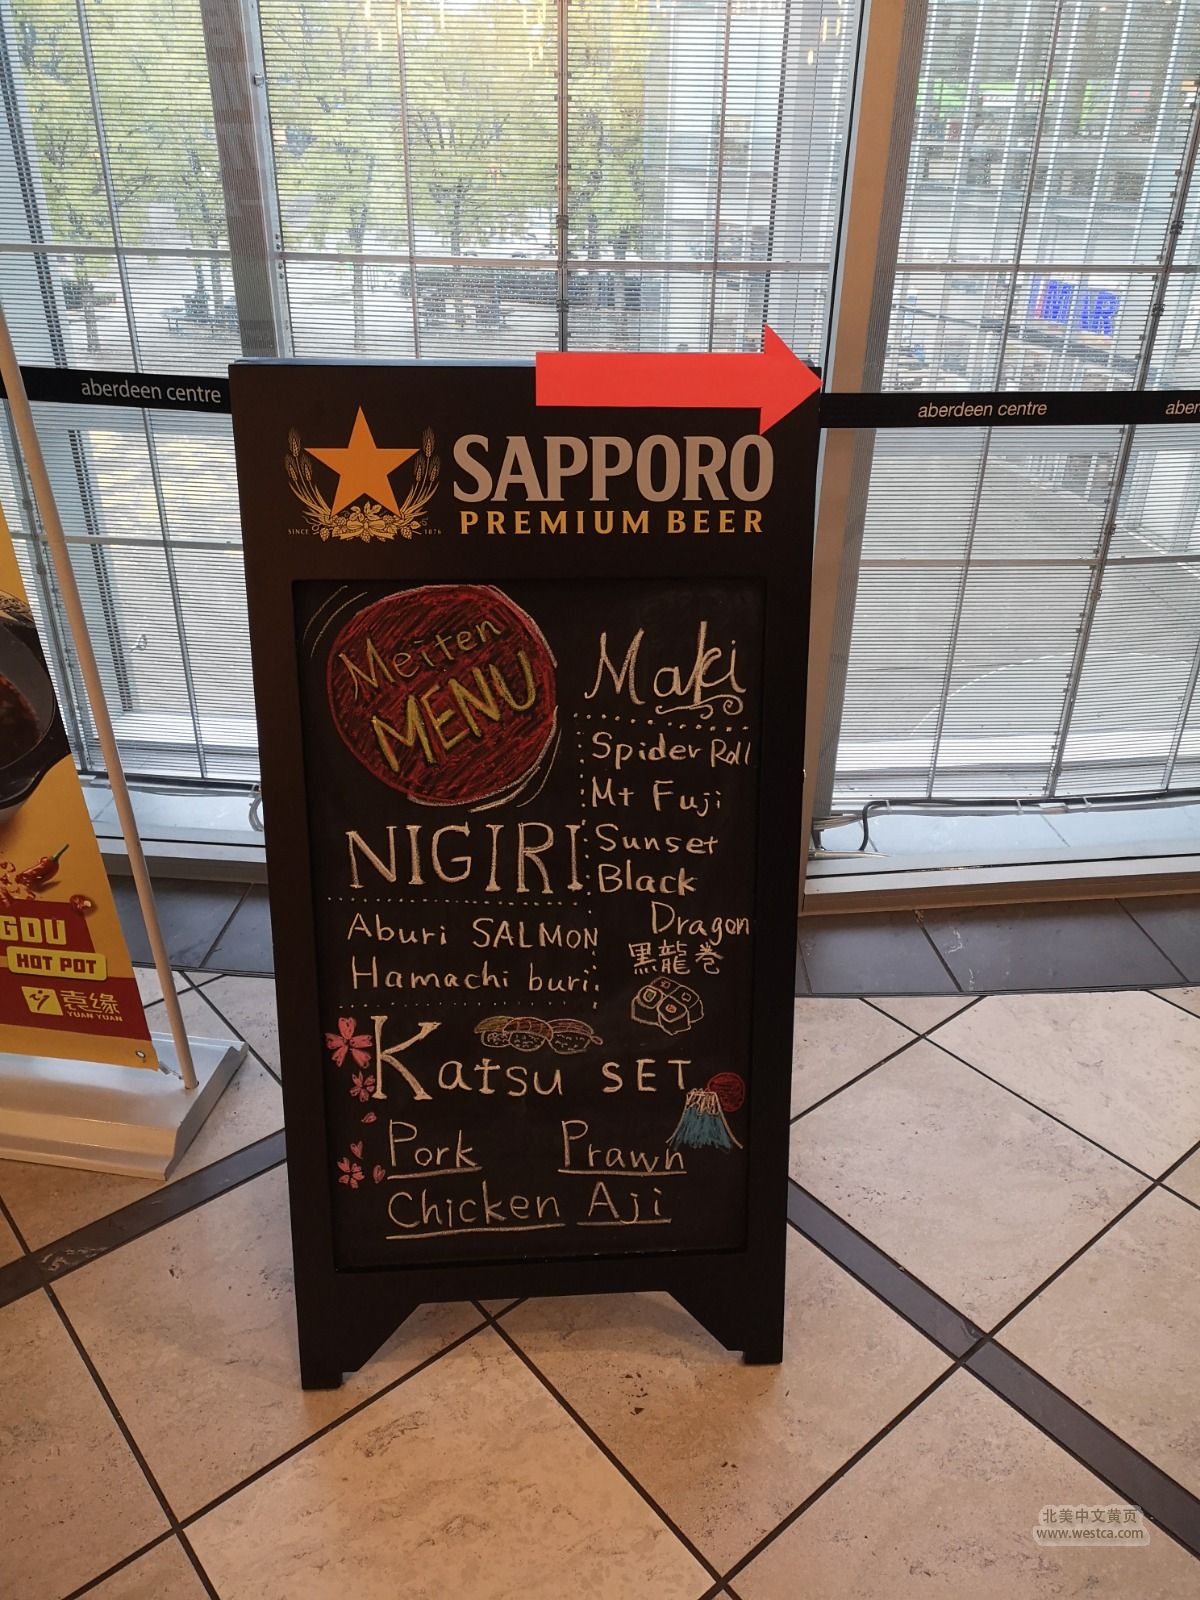 aberdeen centre
aberdeen centre
SAPPORO
PREMIUM BEER
SINCE 1876
Meiten
MENU
Maki
Spider Roll
Mt Fuji
Sunset
Black
Dragon
黒龍巻
NIGIRI
Aburi SALMON
Hamachi buri
Katsu SET
Pork Prawn
Chicken Aji
HOT POT
袁缘
YUAN YUAN
北美中文黄页
www.westca.com